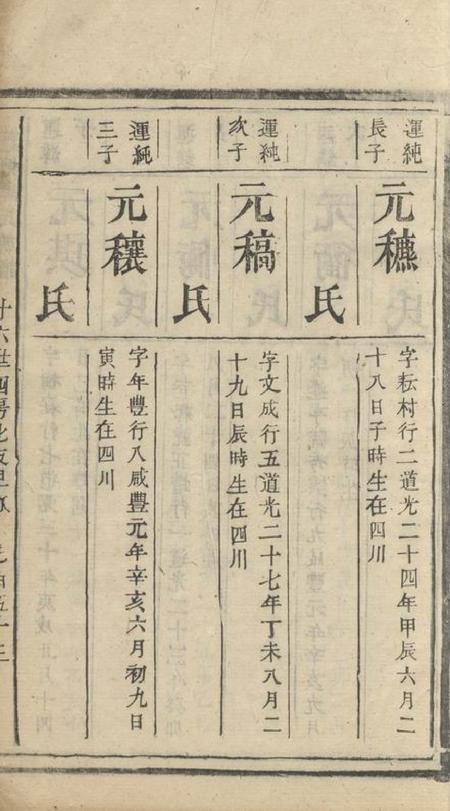 運純
長子
元穮
字耘村行二道光二十四年甲辰六月二
十八日子時生在四川
氏
運純
次子
元稿
字文成行五道光二十七年丁未八月二
十九日辰時生在四川
氏
運純
三子
元穰
字年豐行八咸豐元年辛亥六月初九日
寅時生在四川
氏